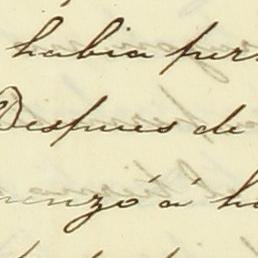 habia per
Despues de
menzó á ha